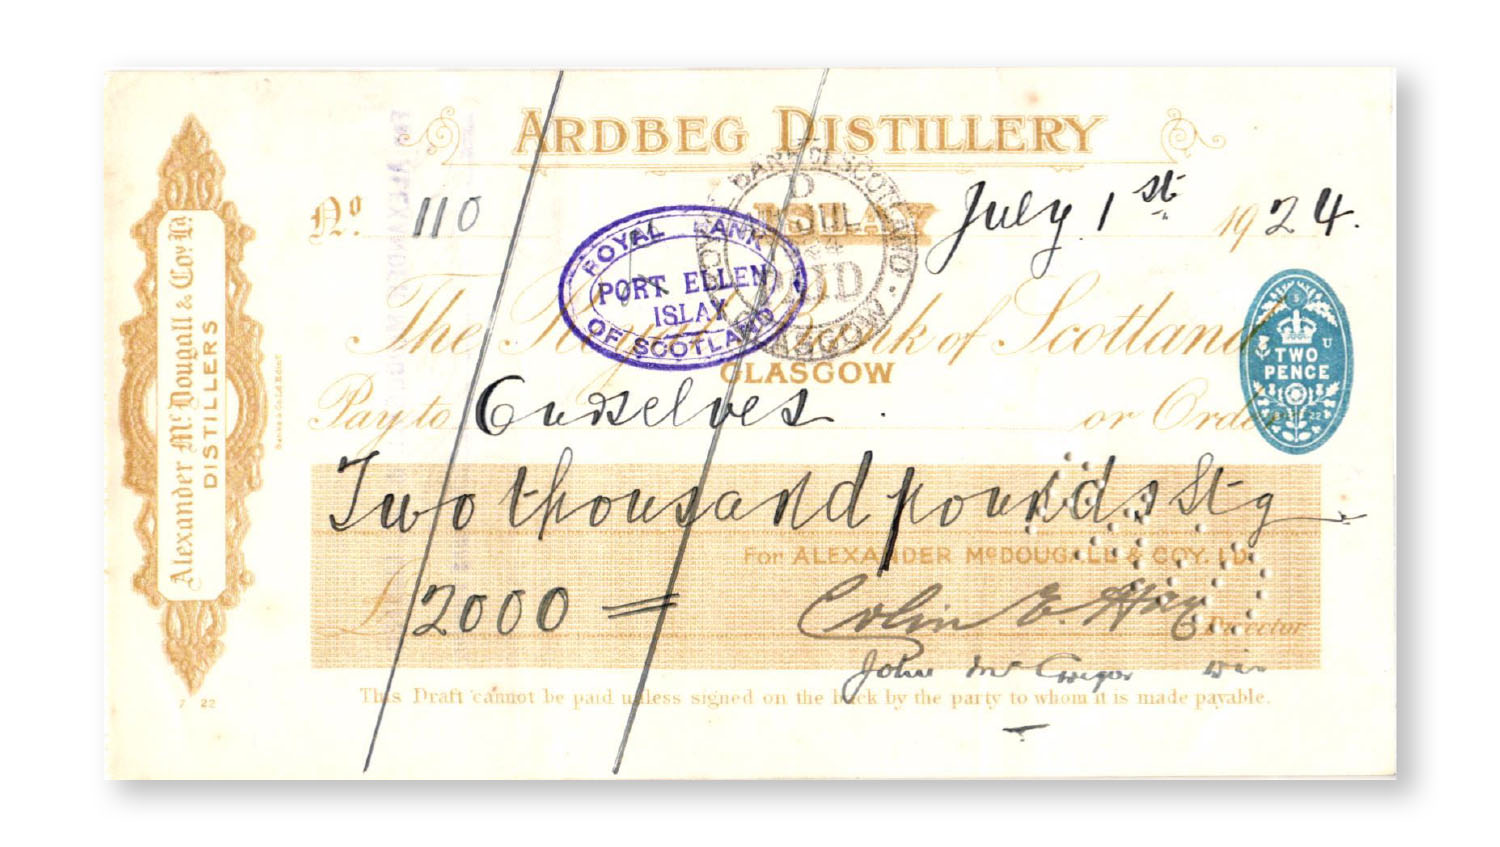 ARDBEG DISTILLERY
Nº. 110
ISLAY
July 1st 1924.
ROYAL BANK OF SCOTLAND
PORT ELLEN
ISLAY
BANK OF SCOTLAND
GLASGOW
The Royal Bank of Scotland
GLASGOW
TWO
PENCE
Pay to Ourselves. or Order
Two thousand pounds Stg
For ALEXANDER McDOUGALL & COY. LD.
£2000 =
Colin E. Hay Director
John McGregor
This Draft cannot be paid unless signed on the back by the party to whom it is made payable.
Alexander McDougall & Coy. Ld.
DISTILLERS
7 22